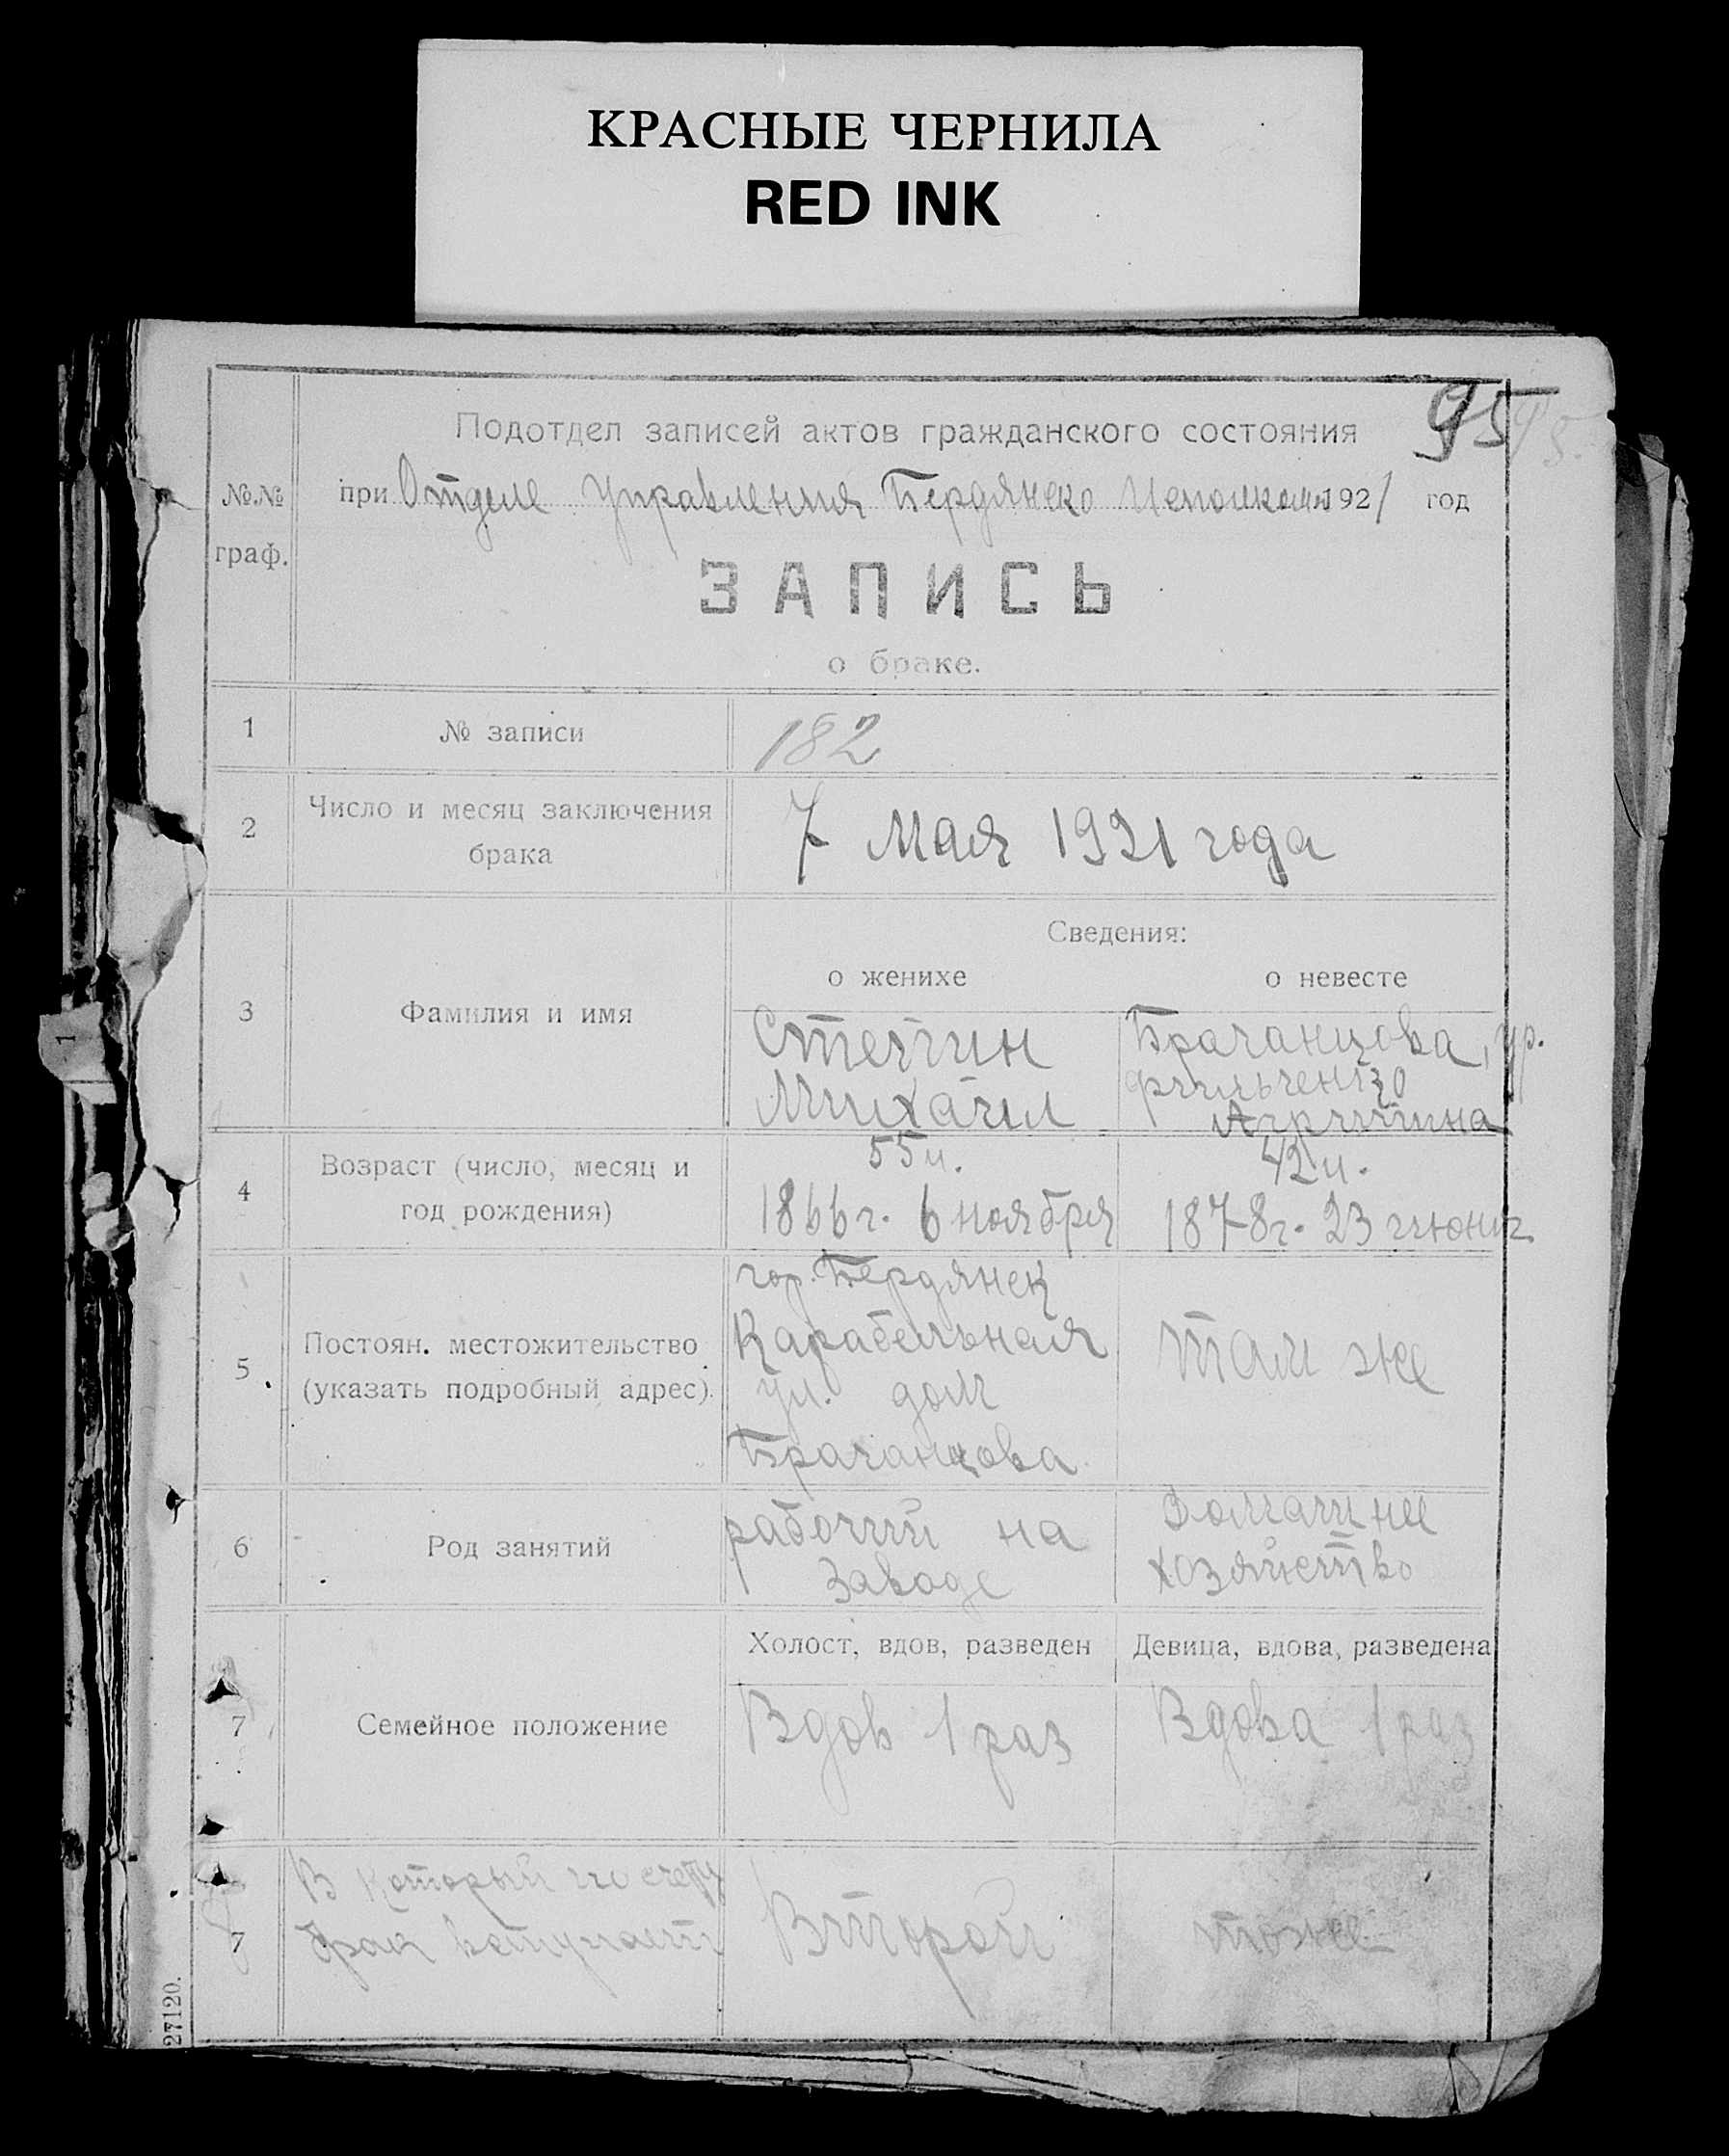 КРАСНЫЕ ЧЕРНИЛА
RED INK
95
Подотдел записей актов гражданского состояния
№№ граф.
при Отделе Управления Бердянско Исполкома 1921 год
ЗАПИСЬ
о браке.
1 № записи 182
2 Число и месяц заключения брака 7 Мая 1921 года
Сведения:
о женихе о невесте
3 Фамилия и имя
Степин
Михаил
Брачанцова, ур.
4 Возраст (число, месяц и год рождения)
55 л.
1866 г. 6 ноября
42 л.
1878 г. 23 июня
5 Постоян. местожительство (указать подробный адрес).
гор. Бердянск
Карабельная
ул. дом
Брачанцова
там же
6 Род занятий
рабочий на
заводе
Домашнее
хозяйство
Холост, вдов, разведен Девица, вдова, разведена
7 Семейное положение
Вдов 1 раз
Вдова 1 раз
7 В который по счету
брак вступает
Второй
тоже
27120.
1